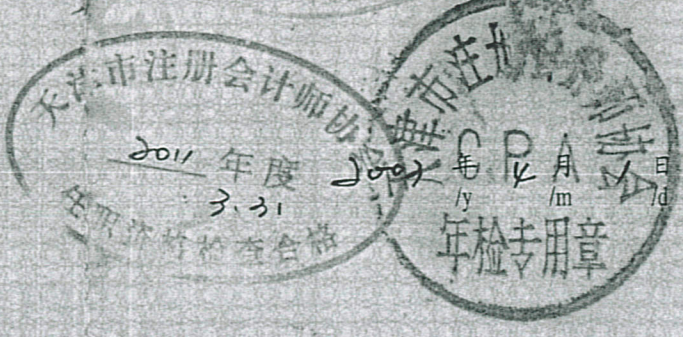 天津市注册会计师协会
2011 年度
3.31
任职资格检查合格
天津市注册会计师协会
CPA
年 4 月 日
/y /m /d
年检专用章